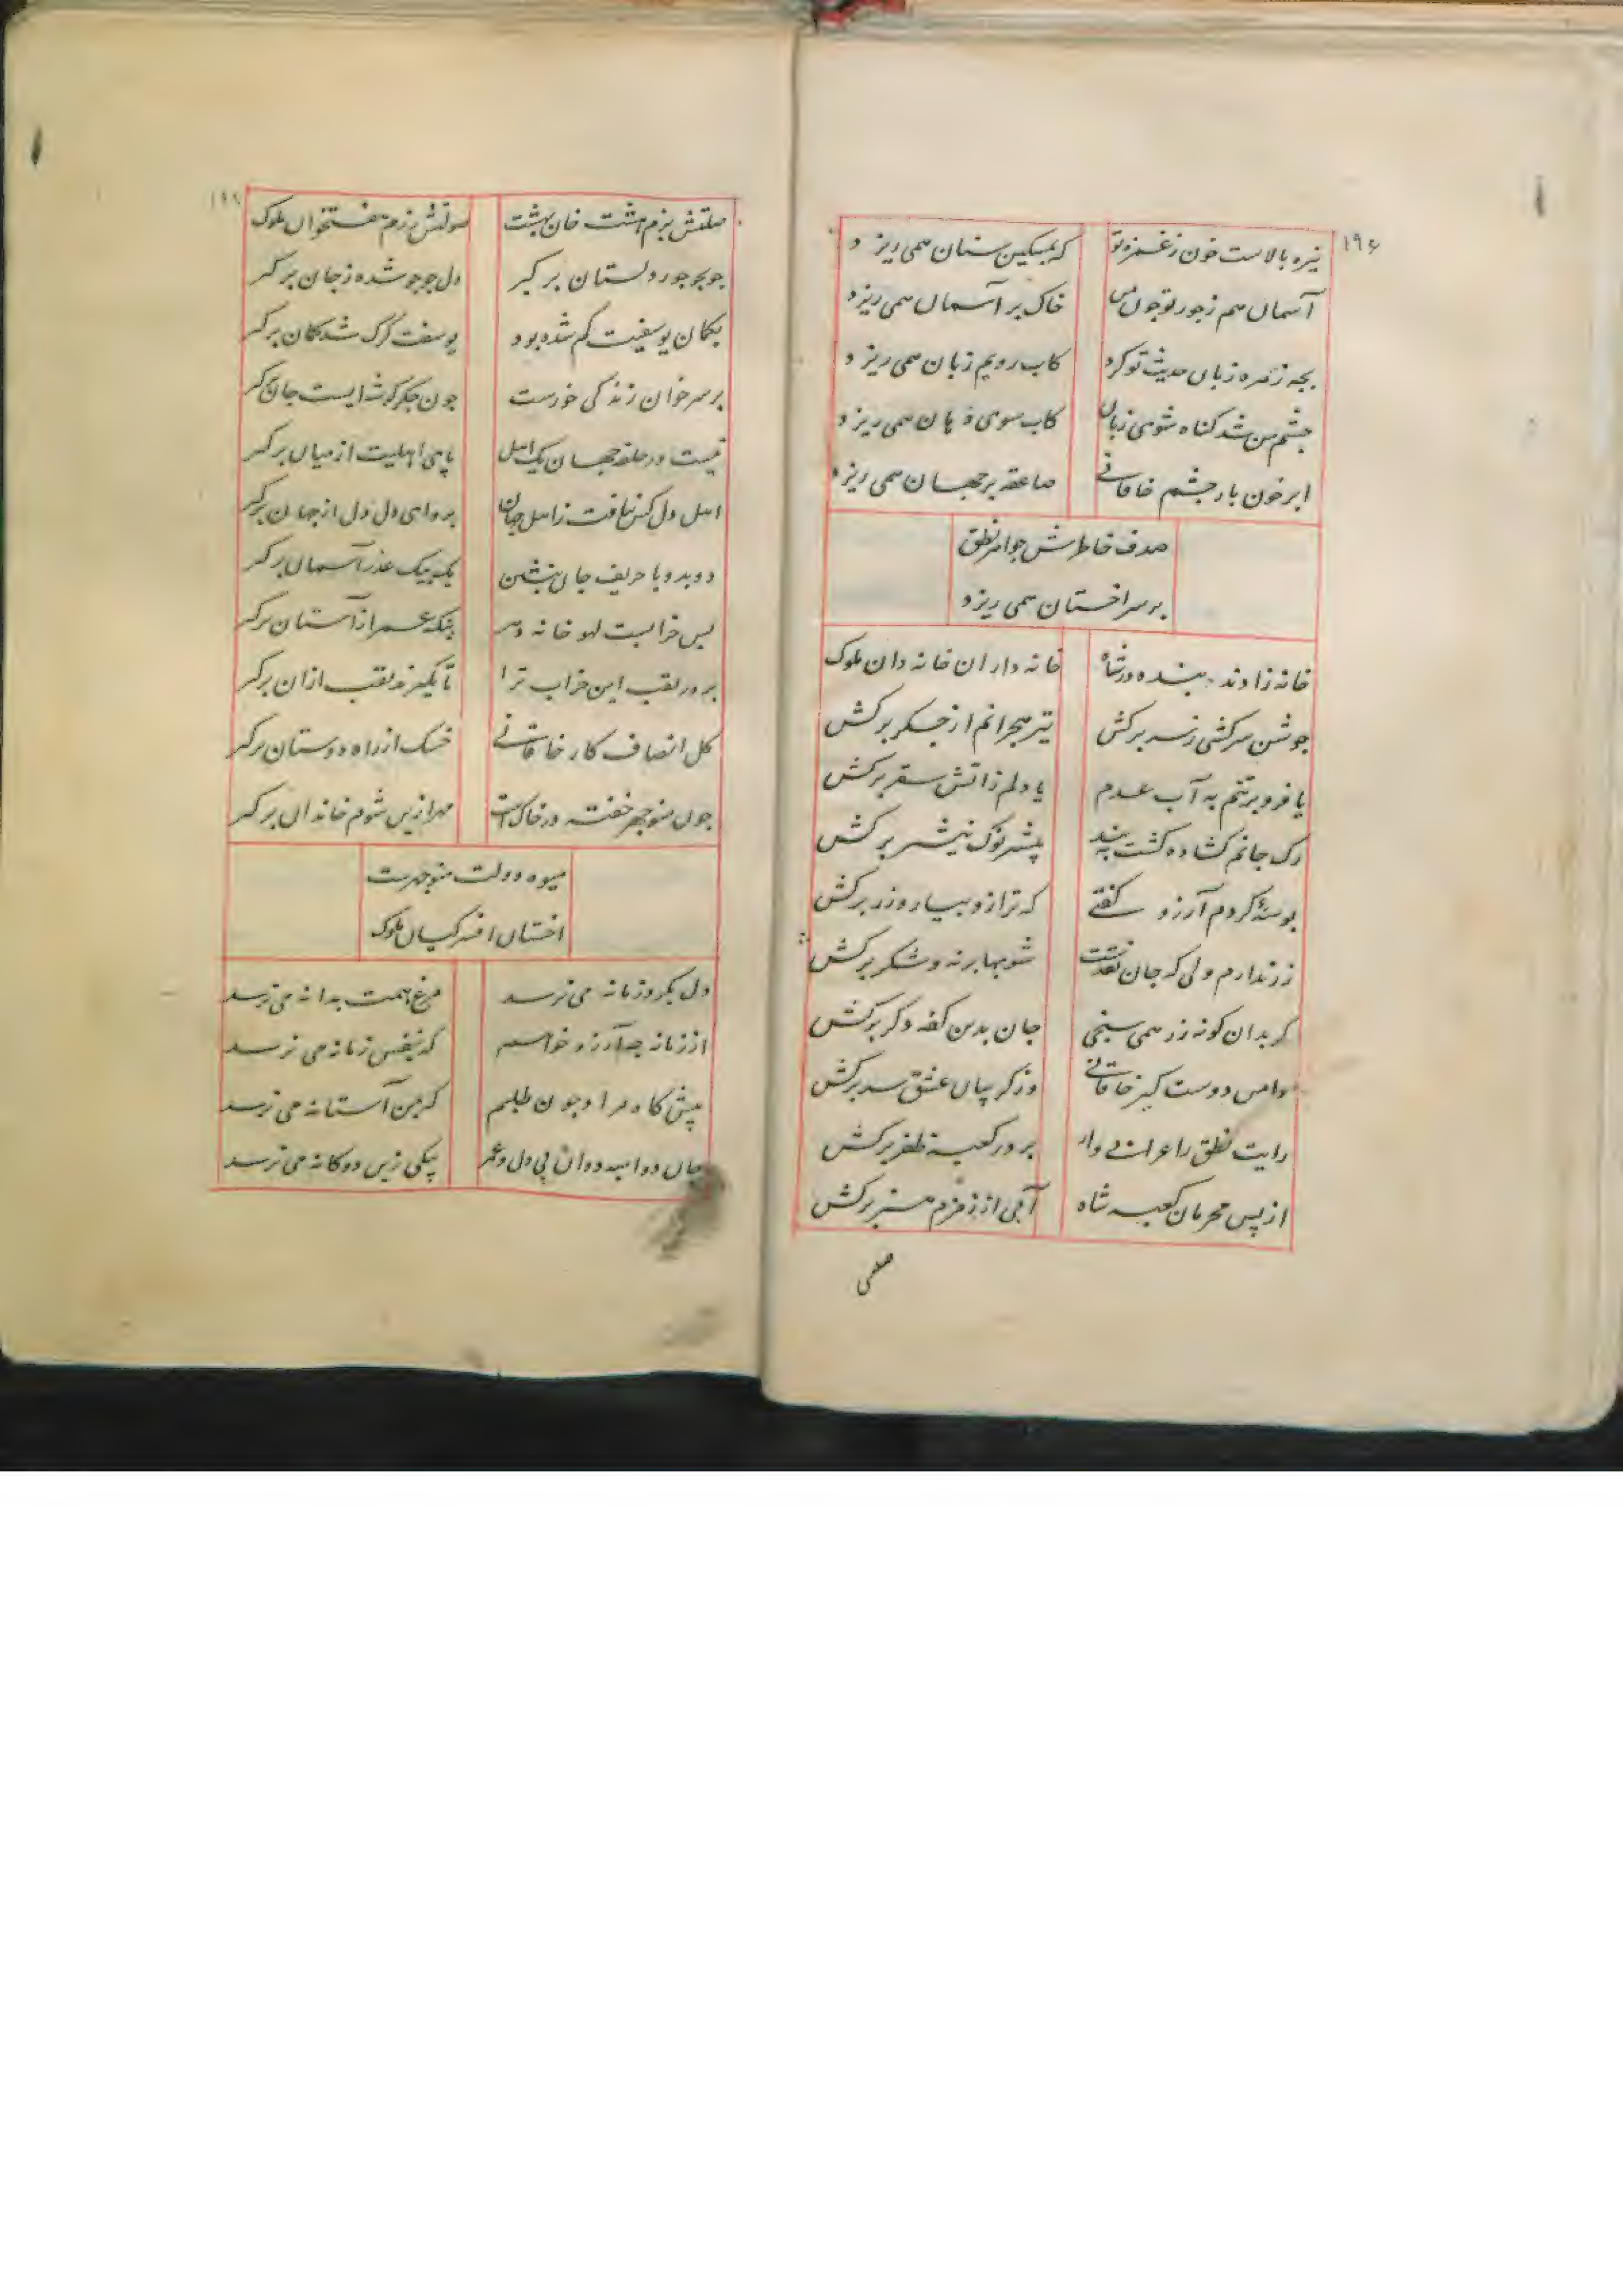 ۱۹۶
نیزه بالاست خون ز غمزه تو
که بمسکین سنان همی ریزد
آسمان هم ز جور تو چون من
خاک بر آسمان همی ریزد
بچه زهره زبان حدیث تو کرد
کاب رویم زبان همی ریزد
چشم من شد گناه شوی زبان
کاب سوی دهان همی ریزد
ابر خون بار چشم خاقانے
صاعقه بر جهان همی ریزد
صدف خاطرش جواهر نطق
بر سر اخستان همی ریزد
خانه زادند بنده در شاه
خانه داران خانه دان ملوک
جوشن سرکشی ز سر برکش
تیر هجرانم از جگر برکش
یا فرو بر تنم به آب عدم
یا دلم ز آتش سقر برکش
رک جانم کشاده کشت ببند
نیشتر نوک نیشتر برکش
بوسهٔ کردم آرزو گفتے
که ترازو بیار و زر برکش
زر ندارم ولی که جان نقدست
شو بها برنه و شکر برکش
کر بدان کونه زر همی سنجی
جان بدین کفه دکر برکش
دامن دوست کیر خاقانے
وز کریبان عشق سر برکش
رایت نطق را عرابے وار
بر در کعبه ظفر برکش
از پس محرمان کعبه شاه
آبی از زمزم هنر برکش
صلتش
صلتش بزم هشت خان بهشت
صولتش رزم هفتخوان ملوک
جو بجو جور دلستان برکیر
دل جو جو شده ز جان برکیر
بکمان یوسفیت کم شده بود
یوسفت کرک شد کمان برکیر
بر سر خوان زندکی خورست
جون جکر کوشه ایست جان برکیر
نیست در حلقه جهان یک اهل
پای اهلیت از میان برکیر
اهل دل کس نیافت ز اهل جهان
برو ای دل دل از جهان برکیر
دو بدو با حریف جان بنشین
یک بیک عذر آسمان برکیر
بس خرابست لهو خانه دهر
بنکه عمر از آستان برکیر
بر در نقب این خراب ترا
تا نکیرند نقب از آن برکیر
کل انصاف کار خاقانے
خسک از راه دوستان برکیر
جون منوجهر خفته در خاک است
مهر ازین شوم خاندان برکیر
میوه دولت منوجهرست
اخستان افسر کیان ملوک
دل بکروز مانه می نرسد
مرغ همت بدانه می نرسد
از زمانه چه آرزو خواهم
که بنفس زمانه می نرسد
پیش کاه مراد جون طلبم
که بمن آستانه می نرسد
جان دو امید و آن بی دل و عمر
یکی زین دوکانه می نرسد